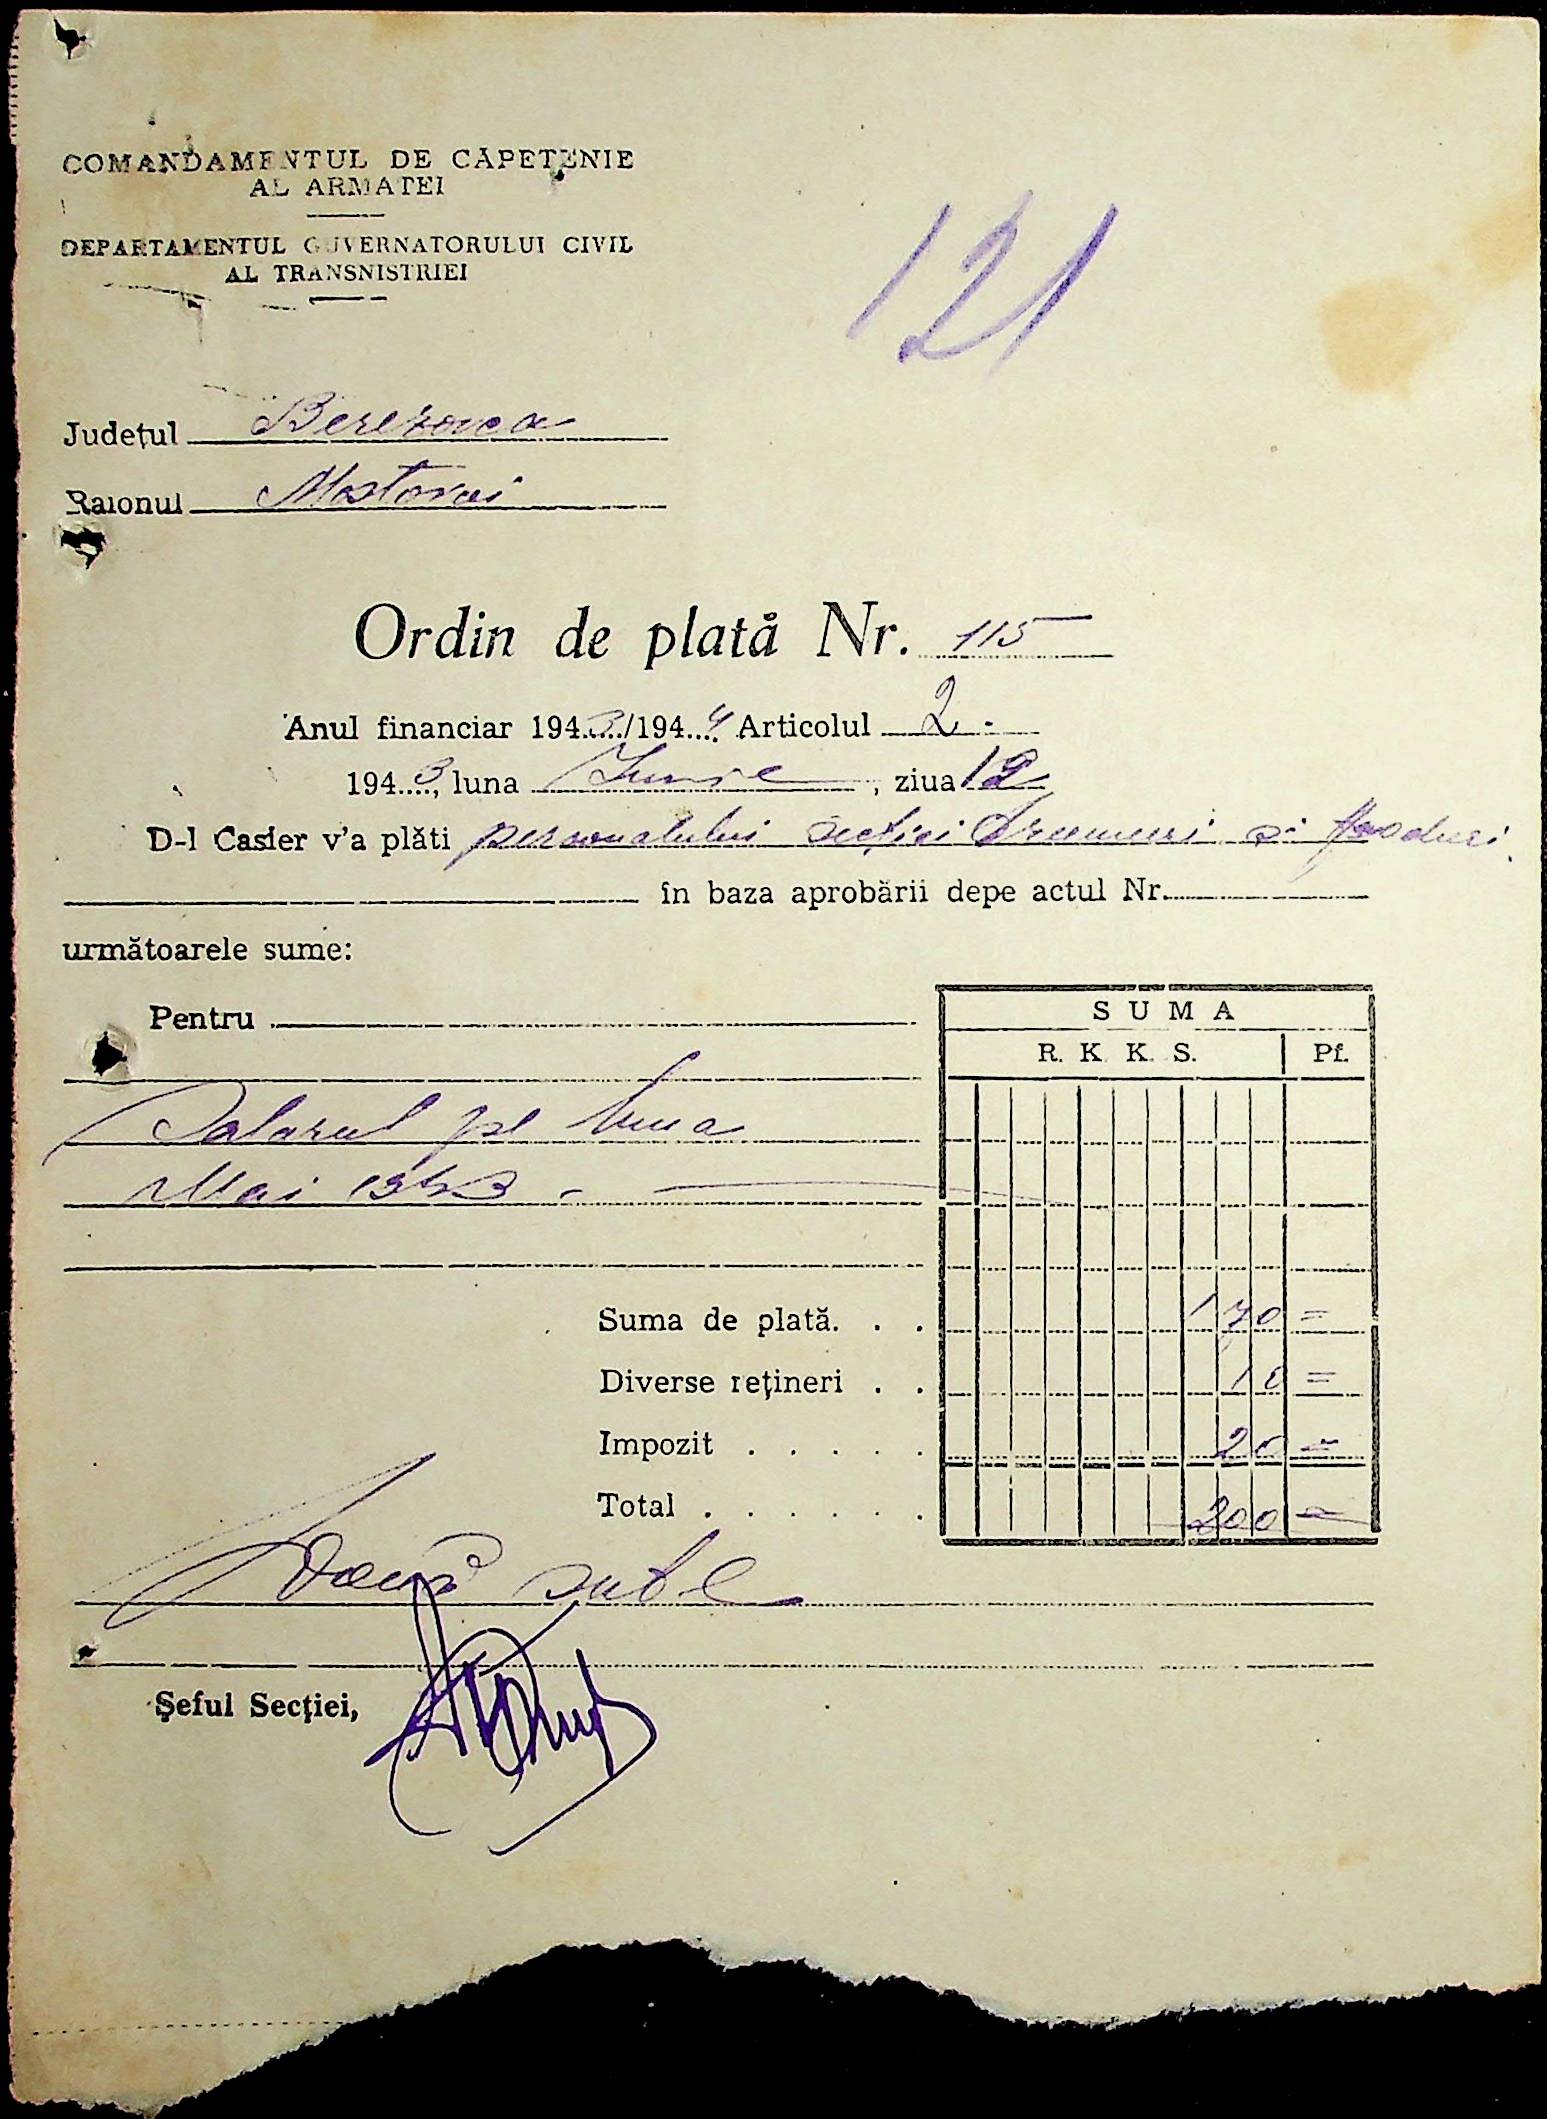 COMANDAMENTUL DE CĂPETENIE
AL ARMATEI
DEPARTAMENTUL GUVERNATORULUI CIVIL
AL TRANSNISTRIEI
121
Județul Berezovca
Raionul Mostovoi
Ordin de plată Nr. 115
Anul financiar 1943/1944 Articolul 2-
1943, luna Iunie, ziua 12
D-l Casier v'a plăti personalului secției Drumuri si Poduri
în baza aprobării depe actul Nr.
următoarele sume:
Pentru
SUMA
R. K. K. S. Pf.
Salarul pe luna
Mai 1943 -
Suma de plată. . . 170 =
Diverse rețineri . . 10 =
Impozit . . . . . 20 =
Total . . . . . . 200 =
Două sute
Șeful Secției,